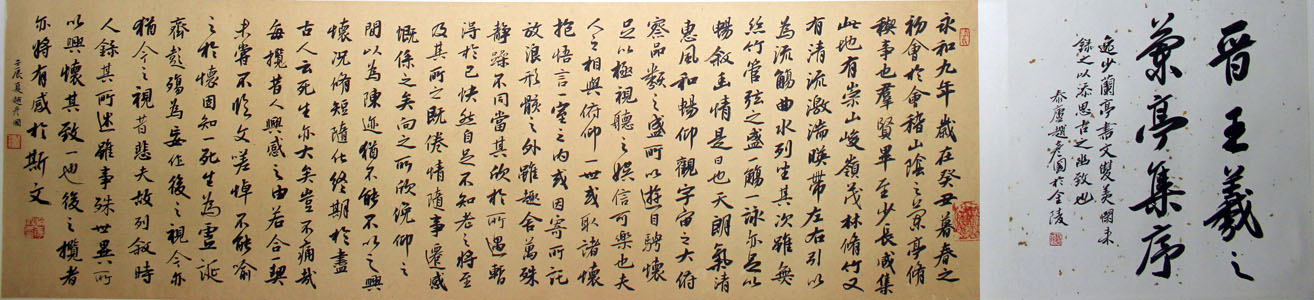 晉王羲之
蘭亭集序
逸少蘭亭書文雙美閑来
錄之以添思古之幽致也
泰廬趙彥國於金陵
永和九年歲在癸丑暮春之
初會於會稽山陰之蘭亭脩
稧事也羣賢畢至少長咸集
此地有崇山峻嶺茂林脩竹又
有清流激湍暎帶左右引以
為流觴曲水列坐其次雖無
絲竹管弦之盛一觴一詠亦足以
暢敘幽情是日也天朗氣清
惠風和暢仰觀宇宙之大俯
察品類之盛所以遊目騁懷
足以極視聽之娛信可樂也夫
人之相與俯仰一世或取諸懷
抱悟言一室之內或因寄所託
放浪形骸之外雖趣舍萬殊
靜躁不同當其欣於所遇暫
得於己快然自足不知老之將至
及其所之既倦情隨事遷感
慨係之矣向之所欣俛仰之
間以為陳迹猶不能不以之興
懷況脩短隨化終期於盡
古人云死生亦大矣豈不痛哉
每攬昔人興感之由若合一契
未嘗不臨文嗟悼不能喻
之於懷固知一死生為虛誕
齊彭殤為妄作後之視今亦
猶今之視昔悲夫故列敘時
人錄其所述雖事殊世異所
以興懷其致一也後之攬者
亦將有感於斯文
壬辰夏趙彥國